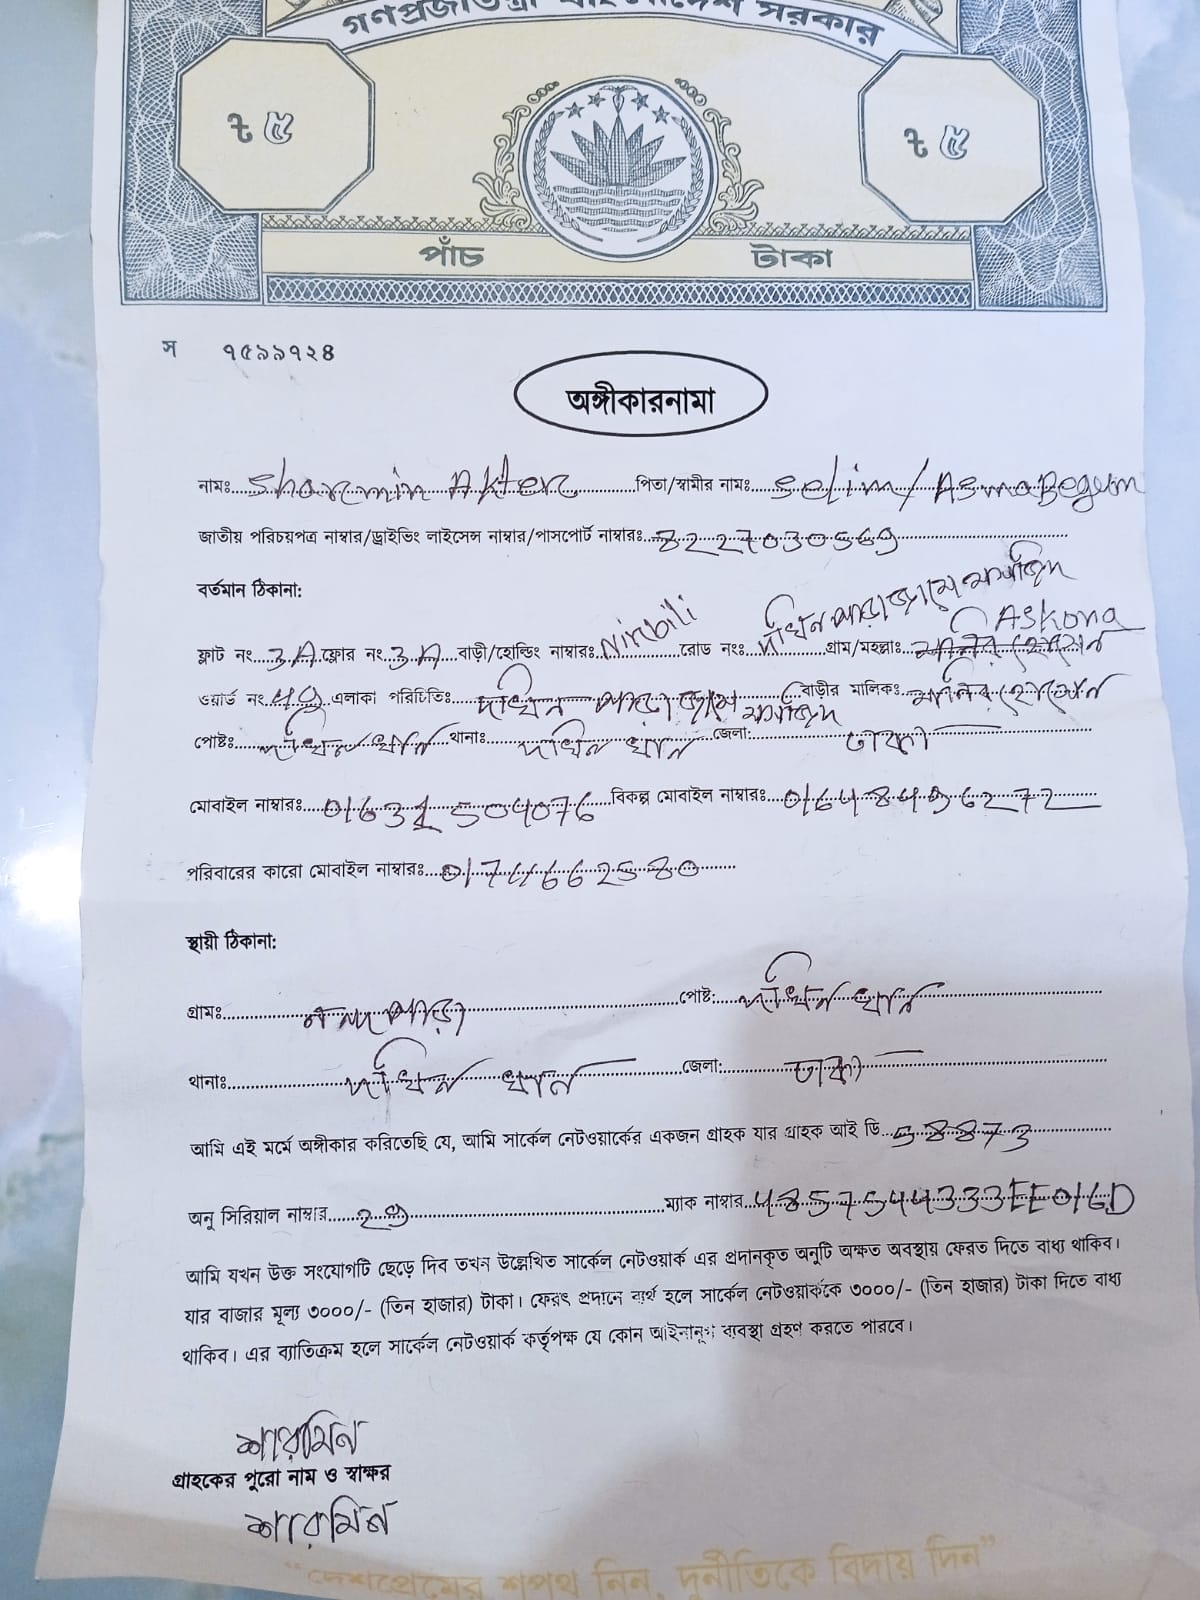 গণপ্রজাতন্ত্রী বাংলাদেশ সরকার
৳ ৫ ৳ ৫
পাঁচ টাকা
স ৭৫৯৯৭২৪
অঙ্গীকারনামা
নামঃ Sharmin Akter পিতা/স্বামীর নামঃ Selim/Asma Begum
জাতীয় পরিচয়পত্র নাম্বার/ড্রাইভিং লাইসেন্স নাম্বার/পাসপোর্ট নাম্বারঃ 8227030569
বর্তমান ঠিকানা:
দখিন পাড়া জামে মসজিদ
Askona
ফ্লাট নং 3A ফ্লোর নং 3A বাড়ী/হোল্ডিং নাম্বারঃ Niribili রোড নংঃ গ্রাম/মহল্লাঃ মনির হোসেন
ওয়ার্ড নং 49 এলাকা পরিচিতিঃ দখিন পাড়া জামে মসজিদ বাড়ীর মালিকঃ মনির হোসেন
পোষ্টঃ দখিন খান থানাঃ দখিন খান জেলা: ঢাকা
মোবাইল নাম্বারঃ 01631504076 বিকল্প মোবাইল নাম্বারঃ
পরিবারের কারো মোবাইল নাম্বারঃ
স্থায়ী ঠিকানা:
গ্রামঃ পোষ্ট: দখিন খান
থানাঃ দখিন খান জেলা: ঢাকা
আমি এই মর্মে অঙ্গীকার করিতেছি যে, আমি সার্কেল নেটওয়ার্কের একজন গ্রাহক যার গ্রাহক আই ডি 58873
অনু সিরিয়াল নাম্বার 29 ম্যাক নাম্বার 4857544333EE016D
আমি যখন উক্ত সংযোগটি ছেড়ে দিব তখন উল্লেখিত সার্কেল নেটওয়ার্ক এর প্রদানকৃত অনুটি অক্ষত অবস্থায় ফেরত দিতে বাধ্য থাকিব।
যার বাজার মূল্য ৩০০০/- (তিন হাজার) টাকা। ফেরৎ প্রদানে ব্যর্থ হলে সার্কেল নেটওয়ার্ককে ৩০০০/- (তিন হাজার) টাকা দিতে বাধ্য
থাকিব। এর ব্যাতিক্রম হলে সার্কেল নেটওয়ার্ক কর্তৃপক্ষ যে কোন আইনানুগ ব্যবস্থা গ্রহণ করতে পারবে।
শারমিন
গ্রাহকের পুরো নাম ও স্বাক্ষর
শারমিন
“দেশপ্রেমের শপথ নিন, দুর্নীতিকে বিদায় দিন”